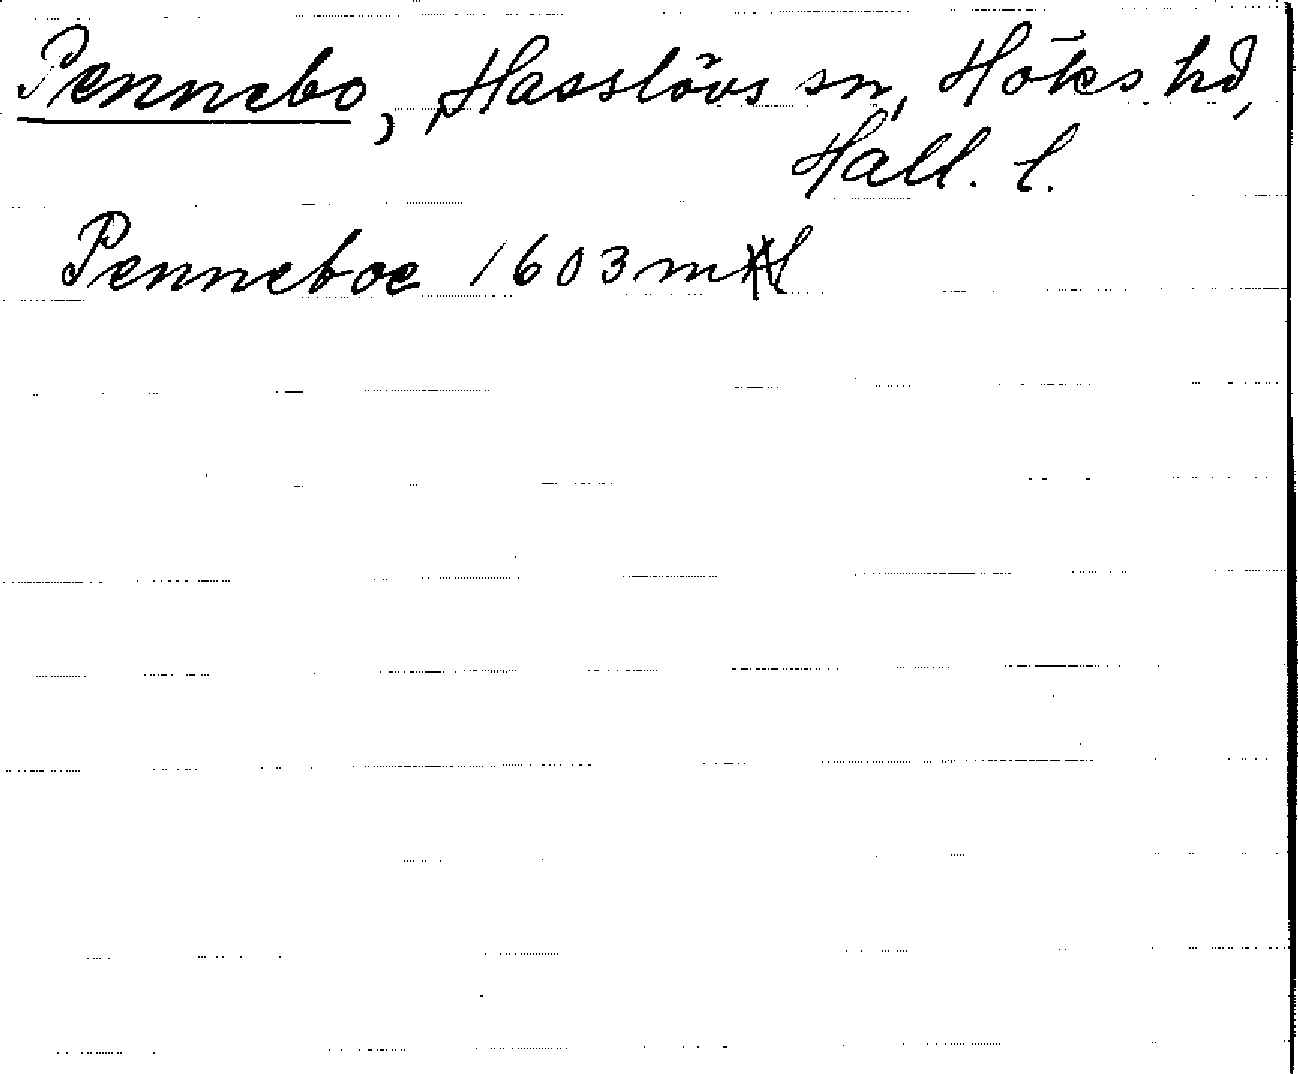 Pennebo, Hasslövs sn, Höks hd,
Hall. l.
Penneboe 1603